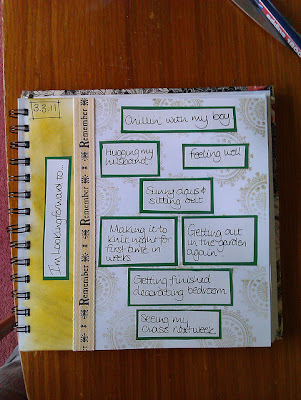 3.3.11
I'm Looking forward to...
Remember
Remember
Remember
Chillin' with my boy
Hugging my
husband
Feeling well
Sunny days &
sitting out
Making it to
knit night for
first time in
weeks
Getting out
in the garden
again
Getting finished
decorating bedroom
Seeing my
next week